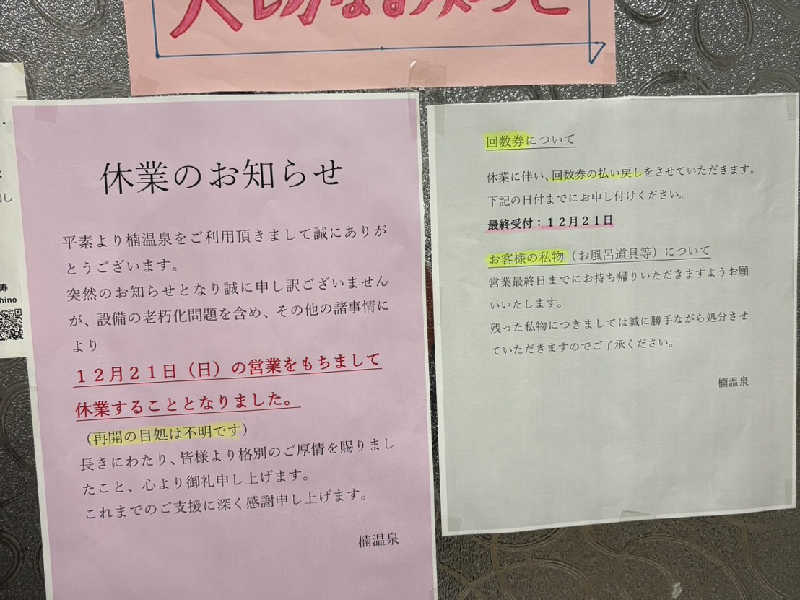 休業のお知らせ
平素より楠温泉をご利用頂きまして誠にありが
とうございます。
突然のお知らせとなり誠に申し訳ございません
が、設備の老朽化問題を含め、その他の諸事情に
より
12月21日（日）の営業をもちまして
休業することとなりました。
（再開の目処は不明です）
長きにわたり、皆様より格別のご厚情を賜りまし
たこと、心より御礼申し上げます。
これまでのご支援に深く感謝申し上げます。
楠温泉
回数券について
休業に伴い、回数券の払い戻しをさせていただきます。
下記の日付までにお申し付けください。
最終受付：12月21日
お客様の私物（お風呂道具等）について
営業最終日までにお持ち帰りいただきますようお願
いいたします。
残った私物につきましては誠に勝手ながら処分させ
ていただきますのでご了承ください。
楠温泉